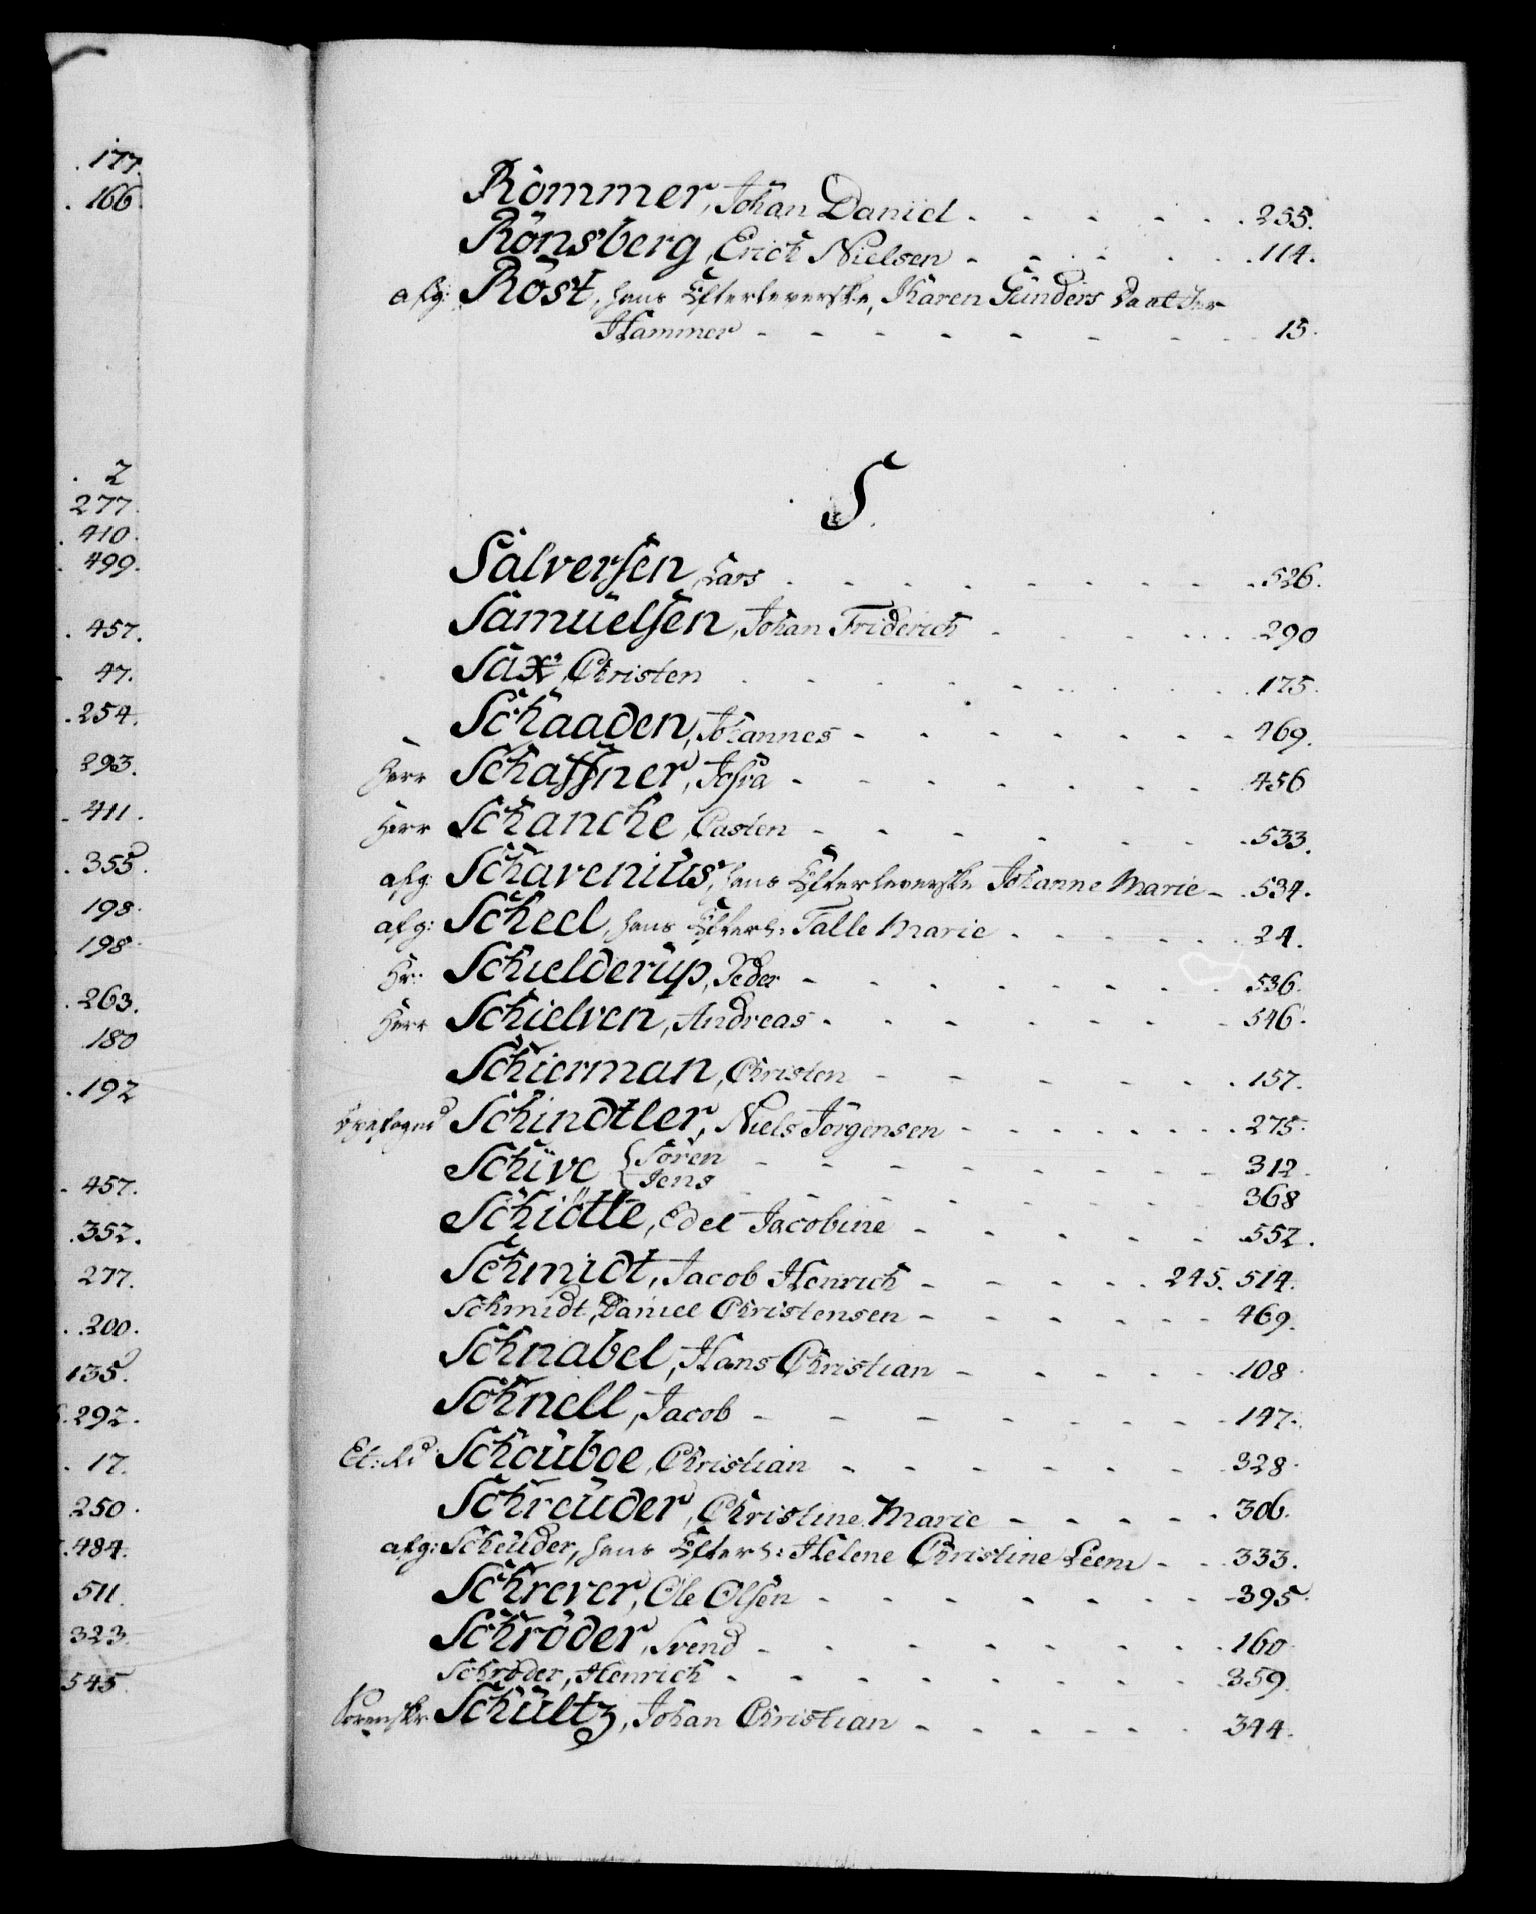 177.
166.
2
277.
410.
499.
457.
47.
254.
293.
411.
355.
198.
198.
263.
180
192
457.
352.
277.
200.
135.
292.
17.
250.
484.
511.
323.
545.
Römmer, Johan Daniel - - - - - 255.
Rönsberg, Erich Nielsen - - - - - 114.
afg: Röst, hans Efterleverske, Karen Gunders Daatter
Hammer - - - - - - - 15.
S.
Salversen, Lars - - - - - - - 526.
Samuelsen, Johan Friderich - - - - - 290
Sax, Christen - - - - - - - 175.
Schaaden, Johannes - - - - - - 469.
Herr Schaffner, Josva - - - - - - 456
Herr Schancke, Casten - - - - - - 533.
afg: Schavenius, hans Efterleverske Johanne Marie - 534.
afg: Scheel, hans Efterl: Talle Marie - - - - 24.
Hr: Schielderup, Peder - - - - - - 536.
Herr Schielven, Andreas - - - - - - 546.
Schierman, Christen - - - - - - 157.
Schindtler, Niels Jörgensen - - - - - 275.
Schive { Sören - - - - - - - 312.
{ Jens - - - - - - - 368
Schiötte, Edel Jacobine - - - - - 552.
Schmidt, Jacob Henrich - - - - 245. 514.
Schmidt, Daniel Christensen - - - - - 469.
Schnabel, Hans Christian - - - - - 108.
Schnell, Jacob - - - - - - - 147.
Et: Rd Schouboe, Christian - - - - - - 328.
Schreuder, Christine Marie - - - - - 306.
afg: Scheuder, hans Efterl: Helene Christine Leem - - 333.
Schrever, Ole Olsen - - - - - - 395.
Schröder, Svend - - - - - - - 160.
Schröder, Henrich - - - - - - - 359.
Sorenskr: Schultz, Johan Christian - - - - - 344.